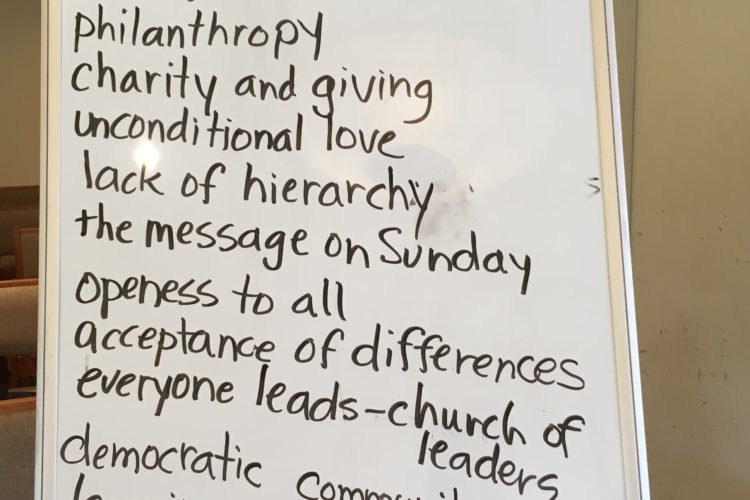 philanthropy
charity and giving
unconditional love
lack of hierarchy
s
the message on Sunday
openess to all
acceptance of differences
everyone leads-church of
leaders
democratic